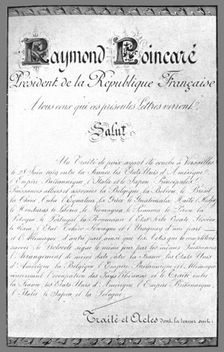 Raymond Poincaré
Président de la République Française
A tous ceux qui ces présentes Lettres verront,
Salut
Un Traité de paix ayant été conclu à Versailles
le 28 Juin 1919 entre la France, les États Unis d'Amérique,
l'Empire Britannique, l'Italie et le Japon Principales
Puissances alliées et associées la Belgique, la Bolivie, le Brésil
la Chine Cuba l'Equateur la Grèce le Guatemala Haïti
le Honduras le Libéria le Nicaragua le Panama le Pérou la
Pologne le Portugal la Roumanie l'État
le Siam, l'État Tchéco Slovaque et l'Uruguay d'une part
et l'Allemagne d'autre part ainsi que
le Protocole signé le même jour par les mêmes
Arrangement le même date entre la France les États Unis
d'Amérique la Belgique l'Empire Britannique et l'Allemagne
concernant l'occupation des Pays Rhénans et le Traité entre
la France les États Unis d'Amérique l'Empire Britannique
l'Italie le Japon et la Pologne
Traité et Actes dont la teneur suit: